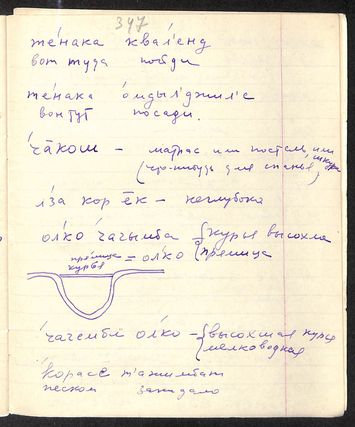 347
те́нака квал'енд
вот туда пойди
те́нака о́мдыл'джил'е
вон тут посади.
ча́ком – матрас или постель, или
(что-нибудь для спанья, шкура
л'за кор ёк – неглубоко
ол'ко ча́чымба – {курья высохла
прямица = ол'ко {прямица
курья
ча́чембе́ ол'ко – {высохшая курья
мелководная
корассе
песком закидало